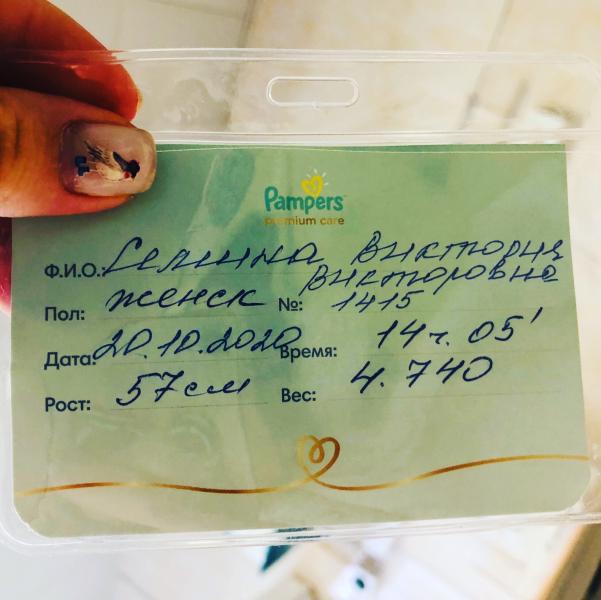 Pampers
premium care
Ф.И.О.: Селина Виктория
Викторовна
Пол: женск №: 1415
Дата: 20.10.2020 Время: 14ч. 05'
Рост: 57см Вес: 4.740